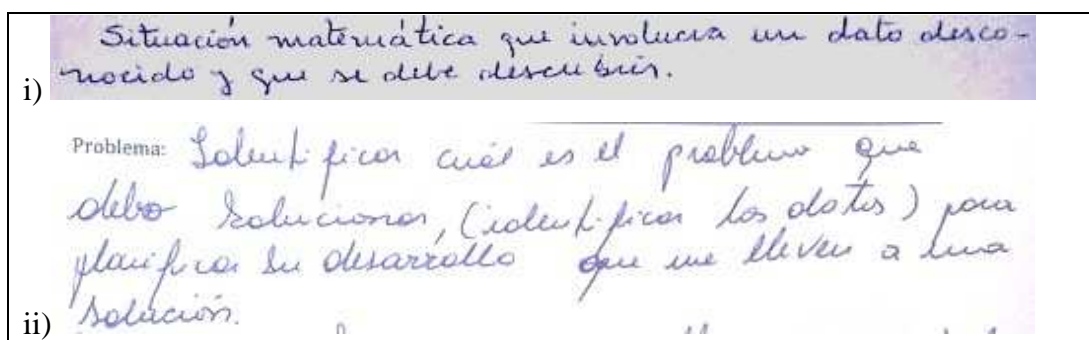 Situación matemática que involucra un dato desco-
i) nocido y que se debe descubrir.
Problema: Identificar cuál es el problema que
debo solucionar, (identificar los datos) para
planificar su desarrollo que me lleven a una
ii) solución.